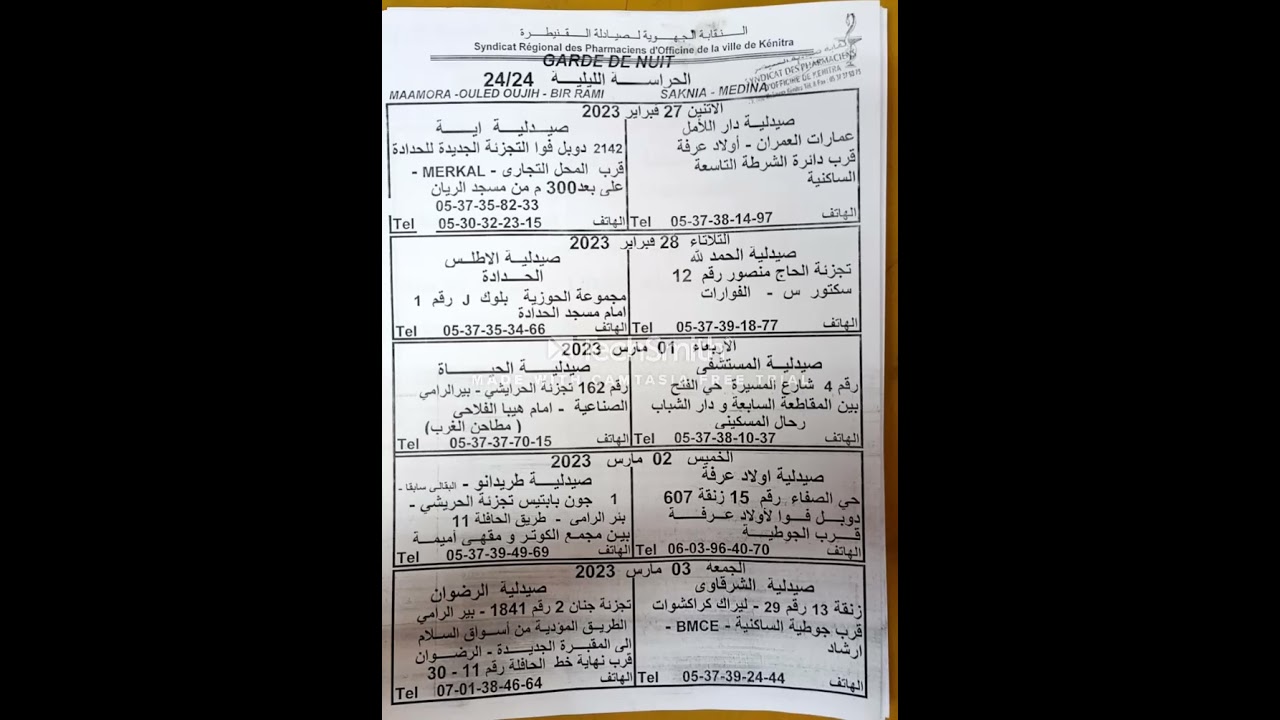 النقابة الجهوية لصيادلة القنيطرة
Syndicat Régional des Pharmaciens d'Officine de la ville de Kénitra
GARDE DE NUIT
الحراسة الليلية 24/24
MAAMORA -OULED OUJIH - BIR RAMI
SAKNIA - MEDINA
SYNDICAT DES PHARMACIENS
D'OFFICINE DE KENITRA
الاتنين 27 فبراير 2023
صيدلية دار اللأمل
عمارات العمران - أولاد عرفة
قرب دائرة الشرطة التاسعة
الساكنية
الهاتف 05-37-38-14-97 Tel
صيدلية اية
2142 دوبل فوا التجزئة الجديدة للحدادة
قرب المحل التجارى - MERKAL -
على بعد300 م من مسجد الريان
05-37-35-82-33
الهاتف 05-30-32-23-15 Tel
التلاتاء 28 فبراير 2023
صيدلية الحمد لله
تجزئة الحاج منصور رقم 12
سكتور س - الفوارات
الهاتف 05-37-39-18-77 Tel
صيدلية الاطلس
الحدادة
مجموعة الحوزية بلوك J رقم 1
امام مسجد الحدادة
الهاتف 05-37-35-34-66 Tel
الاربعاء 01 مارس 2023
صيدلية المستشفى
رقم 4 شارع المسيرة حي الفتح
بين المقاطعة السابعة و دار الشباب
رحال المسكينى
الهاتف 05-37-38-10-37 Tel
صيدلية الحياة
رقم 162 تجزئة الحرايشي - بيرالرامي
الصناعية - امام هيبا الفلاحى
( مطاحن الغرب)
الهاتف 05-37-37-70-15 Tel
الخميس 02 مارس 2023
صيدلية اولاد عرفة
حي الصفاء رقم 15 زنقة 607
دوبل فوا لأولاد عرفة
قرب الجوطية
الهاتف 06-03-96-40-70 Tel
صيدلية طريدانو - البقالى سابقا -
1 جون بابتيس تجزئة الحريشي -
بئر الرامى - طريق الحافلة 11
بين مجمع الكوتر و مقهى أميمة
الهاتف 05-37-39-49-69 Tel
الجمعة 03 مارس 2023
صيدلية الشرقاوى
زنقة 13 رقم 29 - ليراك كراكشوات
قرب جوطية الساكنية - BMCE -
ارشاد
الهاتف 05-37-39-24-44 Tel
صيدلية الرضوان
تجزئة جنان 2 رقم 1841 - بير الرامي
الطريق المؤدية من أسواق السلام
الى المقبرة الجديدة - الرضوان
قرب نهاية خط الحافلة رقم 11 - 30
الهاتف 07-01-38-46-64 Tel
TechSmith
MADE WITH CAMTASIA FREE TRIAL